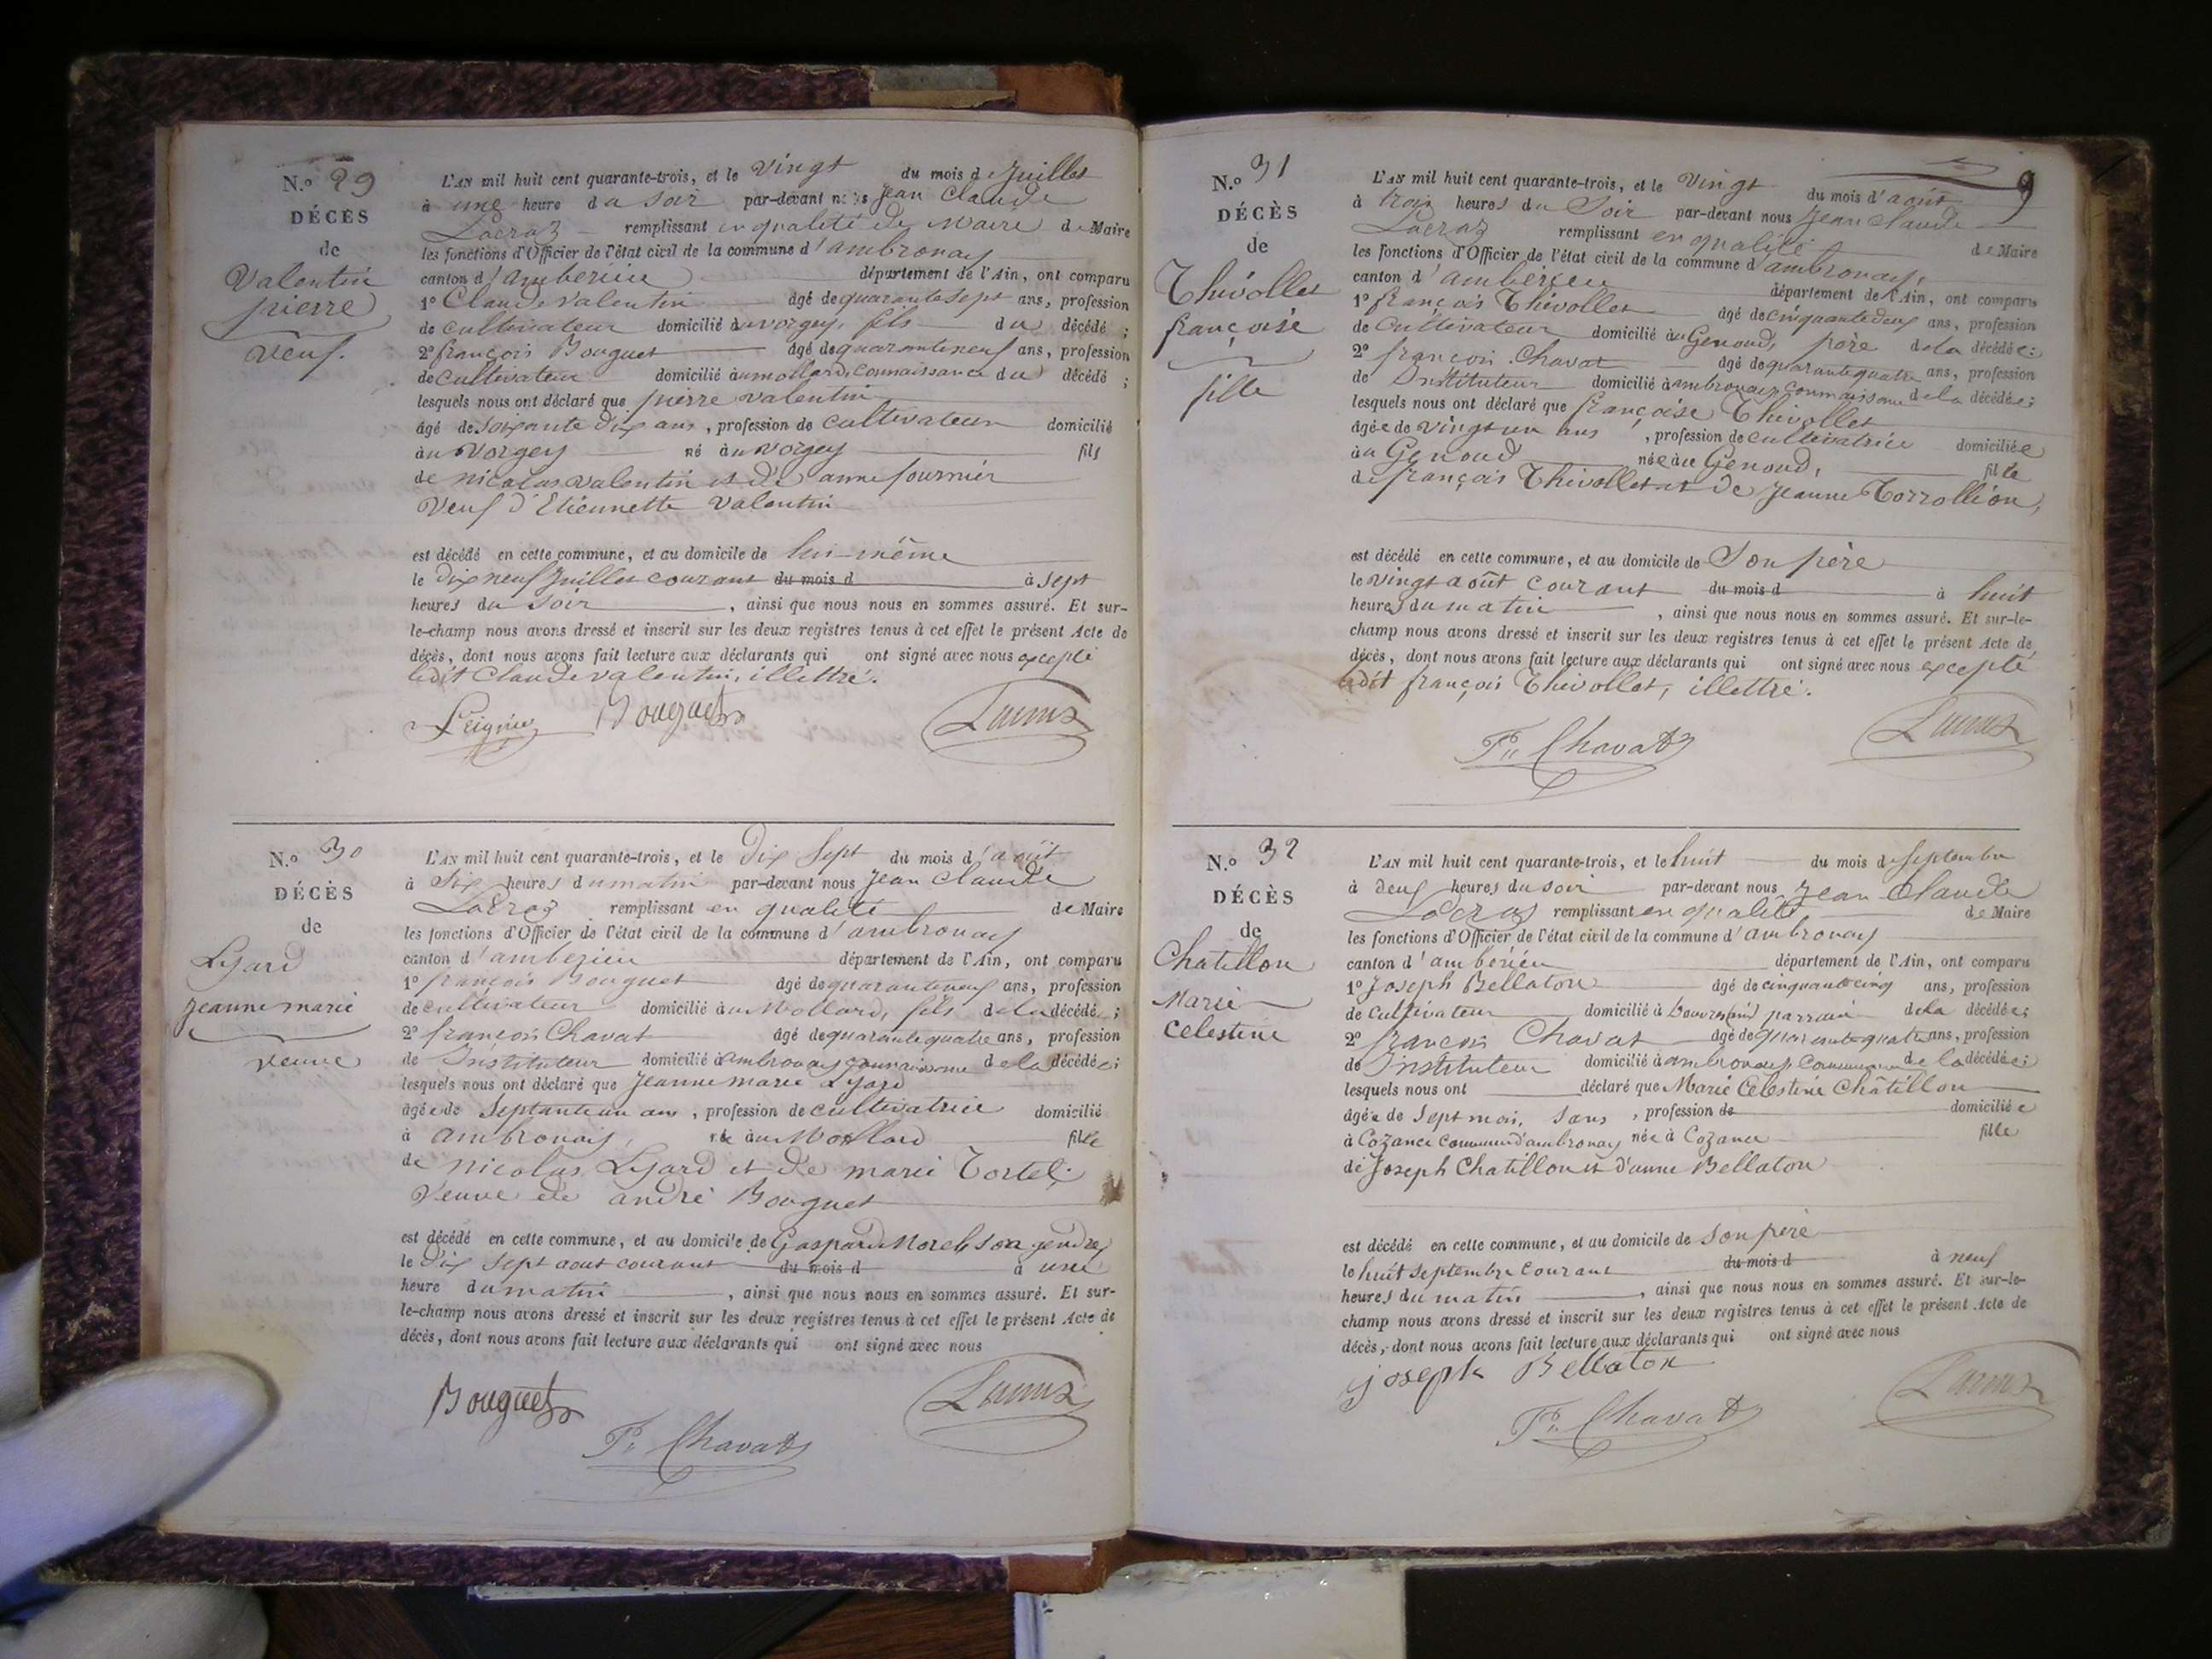 N.º 29
DÉCÈS
de
Valentin
pierre
veuf.
L'AN mil huit cent quarante-trois, et le vingt du mois de juillet
à une heure du soir par-devant nous Jean Claude
Lacroz remplissant en qualité de Maire de Maire
les fonctions d'Officier de l'état civil de la commune d'ambronay
canton d'amberieu département de l'Ain, ont comparu
1º Claude Valentin âgé de quarante sept ans, profession
de cultivateur domicilié au vorgey, fils du décédé;
2º françois Bouguet âgé de quaranteneuf ans, profession
de cultivateur domicilié au mollard, connaissance du décédé;
lesquels nous ont déclaré que pierre valentin
âgé de soixante dix ans, profession de cultivateur domicilié
au vorgey né au vorgey fils
de nicolas valentin et de anne fournier
veuf d'Etiennette valentin
est décédé en cette commune, et au domicile de lui-même
le dix neuf juillet courant du mois d à sept
heures du soir, ainsi que nous nous en sommes assuré. Et sur-
le-champ nous avons dressé et inscrit sur les deux registres tenus à cet effet le présent Acte de
décès, dont nous avons fait lecture aux déclarants qui ont signé avec nous excepté
ledit Claude valentin, illettré.
Bouguet Lacroz
N.º 30
DÉCÈS
de
Lyard
jeanne marie
veuve
L'AN mil huit cent quarante-trois, et le dix sept du mois d'août
à six heures du matin par-devant nous Jean Claude
Lacroz remplissant en qualité de Maire
les fonctions d'Officier de l'état civil de la commune d'ambronay
canton d'amberieu département de l'Ain, ont comparu
1º françois Bouguet âgé de quaranteneuf ans, profession
de cultivateur domicilié au Mollard, fils de la décédée;
2º françois Chavat âgé de quarante quatre ans, profession
de Instituteur domicilié à ambronay connaissance de la décédée;
lesquels nous ont déclaré que Jeanne marie Lyard
âgée de septante un ans, profession de cultivatrice domicilié
à ambronay, née au Mollard fille
de nicolas Lyard et de marie Tortel;
veuve de andré Bouguet
est décédé en cette commune, et au domicile de Gaspard Morel son gendre,
le dix sept aout courant du mois d à une
heure du matin, ainsi que nous nous en sommes assuré. Et sur-
le-champ nous avons dressé et inscrit sur les deux registres tenus à cet effet le présent Acte de
décès, dont nous avons fait lecture aux déclarants qui ont signé avec nous
Bouguet Lacroz
F. Chavat
9
N.º 31
DÉCÈS
de
Thévollet
françoise
fille
L'AN mil huit cent quarante-trois, et le vingt du mois d'août
à trois heures du Soir par-devant nous Jean Claude
Lacroz remplissant en qualité de Maire
les fonctions d'Officier de l'état civil de la commune d'ambronay,
canton d'amberieu département de l'Ain, ont comparu
1º françois Thévollet âgé de cinquantedeux ans, profession
de Cultivateur domicilié au Genoud, père de la décédée:
2º françois Chavat âgé de quarante quatre ans, profession
de Instituteur domicilié à ambronay connaissance de la décédée;
lesquels nous ont déclaré que françoise Thevollet
âgée de vingt un ans, profession de cultivatrice domiciliée
au Genoud née au Genoud, fille
de françois Thevollet et de jeanne Torrollion,
est décédé en cette commune, et au domicile de Son père
le vingt août courant du mois d à huit
heures du matin, ainsi que nous nous en sommes assuré. Et sur-le-
champ nous avons dressé et inscrit sur les deux registres tenus à cet effet le présent Acte de
décès, dont nous avons fait lecture aux déclarants qui ont signé avec nous excepté
ledit françois Thevollet, illettré.
F. Chavat Lacroz
N.º 32
DÉCÈS
de
Chatillon
Marie
Celestine
L'AN mil huit cent quarante-trois, et le huit du mois de septembre
à deux heures du soir par-devant nous Jean Claude
Lacroz remplissant en qualité de Maire
les fonctions d'Officier de l'état civil de la commune d'ambronay
canton d'amberieu département de l'Ain, ont comparu
1º Joseph Bellaton âgé de cinquante cinq ans, profession
de cultivateur domicilié à parrain de la décédée;
2º françois Chavat âgé de quarante quatre ans, profession
de Instituteur domicilié à ambronay de la décédée;
lesquels nous ont déclaré que Marie Celestine Châtillon
âgée de sept mois, sans profession de domiciliée
à Cozance commune d'ambronay née à Cozance fille
de Joseph Chatillon et d'anne Bellaton
est décédé en cette commune, et au domicile de son père
le huit septembre courant du mois d à neuf
heures du matin, ainsi que nous nous en sommes assuré. Et sur-le-
champ nous avons dressé et inscrit sur les deux registres tenus à cet effet le présent Acte de
décès, dont nous avons fait lecture aux déclarants qui ont signé avec nous
joseph Bellaton
F. Chavat Lacroz